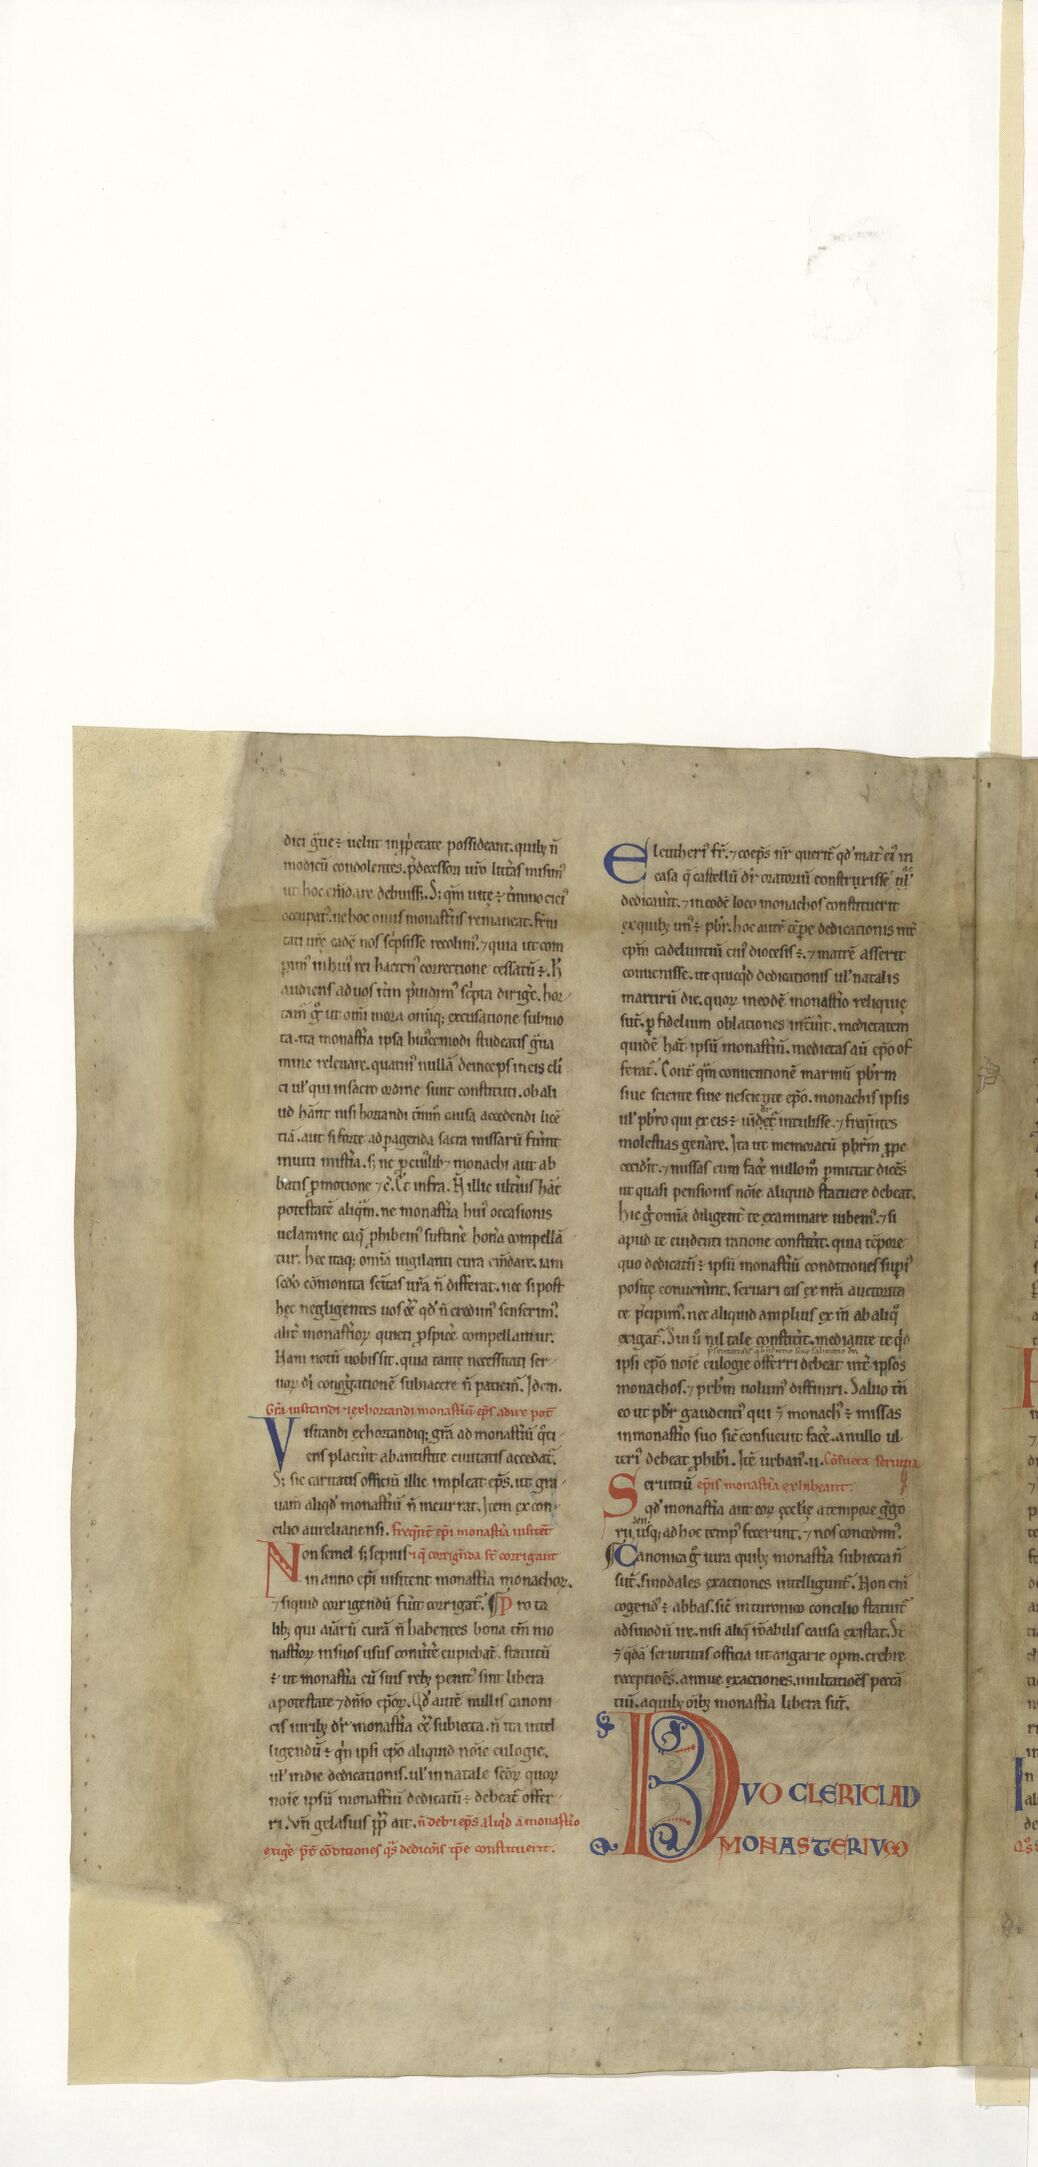 dici ḡue ÷ uelut in ꝓp̄etate possideant. quibꝫ n̄
modicū condolentes. p̄decessori ur̄o litt̄as misim᷒
ut hoc em̄dare debuiss;. S; qm̄ uitę ÷ t̄mino cici᷒
occupat᷒. ne hoc onus monast̄iis remaneat. fr̄ni
tati ur̄e eadē nos sc̄psisse recolim᷒. ⁊ quia ut com
perim᷒ in hui᷒ rei hacten᷒ correctione cessatū ÷. h̄
audiens ad uos it̄m p̄uidim᷒ sc̄pta dirigē. hor
tam̄ ḡ ut om̄i mora om̄iq; excusatione submo
ta. ita monast̄ia ipsa hui᷒cemodi studeatis ḡua
mine releuare. quatin᷒ nullā deinceps in eis cl̄i
ci ul᷒ qui in sacro ordine sunt constituti. ob ali
ud hānt nisi horandi t̄mm̄ causa accedendi licē
tiā. aut si forte ad pagenda sacra missarū fuīnt
inuti mist̄ia. s; ne ꝓ cuiꝰlib᷒ monachi aut ab
batis ꝓmotione ⁊ c̄. Et infra. N̄ illic ult̄ius hāc
potestatē aliqm̄. ne monast̄ia hui᷒ occasionis
uelamine ea q̄ ꝓhibem᷒ sustinē hon̄a compellā
tur. hec itaq; om̄ia uigilanti cura em̄dare. iam
sed̄o cōmonita sc̄itas ur̄a n̄ differat. nec si post
hęc negligentes uos ee᷒ qd᷒ n̄ credim᷒ senserim᷒
alit̄ monast̄ioꝝ quieti ꝓspicē compellamur.
Nam notū uobis sit. quia tantę necessitati ser
uoꝝ di᷒ cong̃gationē subiacere n̄ patiem᷒. Idem.
Gr̄a uisitandi ⁊ exhortandi monast̄iū ep̄s adire pot̄
Visitandi exhortandiq; gr̄a ad monast̄iū q᷒ti
ens placuīt abantistite ciuitatis accedat᷒.
S; sic caritatis officiū illic impleat ep̄s. ut gra
uam̄ aliqd᷒ monast̄iū n̄ incurrat. Item ex con
cilio aurelianensi. Freqn̄t ep̄i monast̄ia uisitēt
Non semel s; sepius ⁊ q̄ corrign̄da st̄ corrigant
in anno ep̄i uisitent monast̄ia monachoꝝ.
⁊ siquid corrigendū fuīt corrigat᷒. ¶ Pro ta
libꝫ qui aīarū curā n̄ habentes bona tm̄ mo
nast̄ioꝝ in suos usus conūtē cupiebat̄. statutū
÷ ut monast̄ia cū suis rebꝫ penit᷒ sint libera
a potestate ⁊ dn̄io ep̄oꝝ. Qd᷒ autē nullis canoni
cis iuribꝫ dr̄ monast̄ia ee᷒ subiecta. n̄ ita intel
ligendū ÷ qn̄ ipsi ep̄o aliquid noīe eulogie.
ul᷒ in die dedicationis. ul᷒ in natale sc̄oꝝ quoꝝ
noīe ipsū monast̄iū dedicatū ÷ debeat᷒ offer
ri. Vn̄ gelasius pp̄ ait. n̄ debet ep̄s aliqd᷒ a monast̄io
exigē p̄t cōditiones q᷒s dedicōis tp̄e constituerit.
Eleutheri᷒ fr̄. ⁊ coep̄s nr̄ querit᷒ qd᷒ mat̄ ei᷒ in
casa q̄ castellū dr̄ oratoriū construxisse ⁊c ul᷒
dedicauīt. ⁊ in eodē loco monachos constituerit
ex quibꝫ un᷒ ÷ pbr̄. hoc autē tēpe dedicationis int̄
ep̄m cadeluntiū cui᷒ diocesis ÷. ⁊ matrē asserit
conuenisse. ut quicq̄d dedicationis ul᷒ natalis
martirū die. quoꝝ in eodē monast̄io reliquię
sut̄. ꝑ fidelium oblationes int̄uīt. medietatem
quidē hāt ipsū monast̄iū. medietas aū ep̄o of
ferat᷒. Cont᷒ qm̄ conuentionē marinū pbr̄m
siue sciente siue nesciente ep̄o. monachis ipsis
ul᷒ pbr̄o qui ex eis ÷ uidet᷒ intulisse. ⁊ freqn̄tes
molestias gen̄are. Ita ut memoratū pbr̄m ꝓpe
cecidīt. ⁊ missas eum facē nullom᷒ ꝑmittat dicēs
ut quasi pensionis noīe aliquid statuere debeat.
hic ḡ om̄ia diligent̄ te examinare iubem᷒. ⁊ si
apud te euidenti ratione constit̄it. quia tēpore
quo dedicatū ÷ ipsū monast̄iū conditiones supi᷒
positę conuenīnt. seruari eas ex nr̄a auctorita
te p̄cipim᷒. nec aliquid amplius ex in̄ ab aliq᷒
exigat᷒. Sin ū nil tale constit̄it. mediante te qd᷒
ipsi ep̄o noīe eulogie offerri debeat int̄ ipsos
monachos. ⁊ prbr̄m uolum᷒ diffiniri. Saluo tn̄
eo ut pbr̄ gaudenti᷒ qui ⁊ monach᷒ ÷ missas
in monast̄io suo sic̄ consueuit facē. a nullo ul
teri᷒ debeat ꝓhiberi. Itē urban᷒. ii. Consueta seruitia
Seruitiū ep̄is monast̄ia exhibeant.
qd᷒ monast̄ia aut eoꝝ ęcclię a tempore ḡgo
rii usq; ad hoc temp᷒ fecerunt. ⁊ nos concedim᷒.
¶ Canonica ḡ iura quibꝫ monast̄ia subiecta n̄
sut̄. sinodales exactiones intelligunt᷒. Non enī
cogend᷒ ÷ abbas. sic̄ in turonico concilio statuit᷒
ad sinodū ire. nisi aliq̄ rōabilis causa existat. St̄
⁊ qdā seruitutis officia ut angarie opm. crebre
receptioēs. annue exactiones. multatioēs peccā
tiū. a quibꝫ oībꝫ monast̄ia libera sut̄.
DVO CLERICI AD
MONASTERIVM